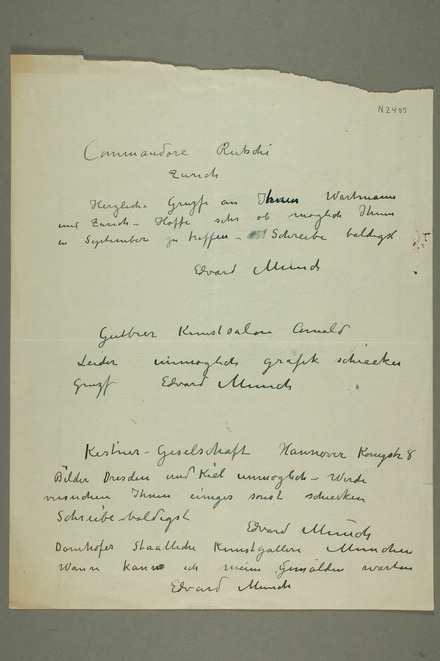 N 2405
Commandore Rütschi
Zürich
Herzliche Grüsse an Ihnen Wartmann
und Zürich – Hoffe sehr ob möglich Ihnen
in September zu treffen – Schreibe baldigst
Edvard Munch
Gutbier Kunstsalon Arnold
Leider unmöglich grafik schicken
Gruss Edvard Munch
Kestner-Geselschaft Hannover Königstr 8
Bilder Dresden und Kiel unmöglich – Werde
versuchen Ihnen einiges sonst schicken
Schreibe baldigst
Edvard Munch
Dornhofer Staatliche Kunstgallerie München
Wann kann ich meine Gemälden warten
Edvard Munch